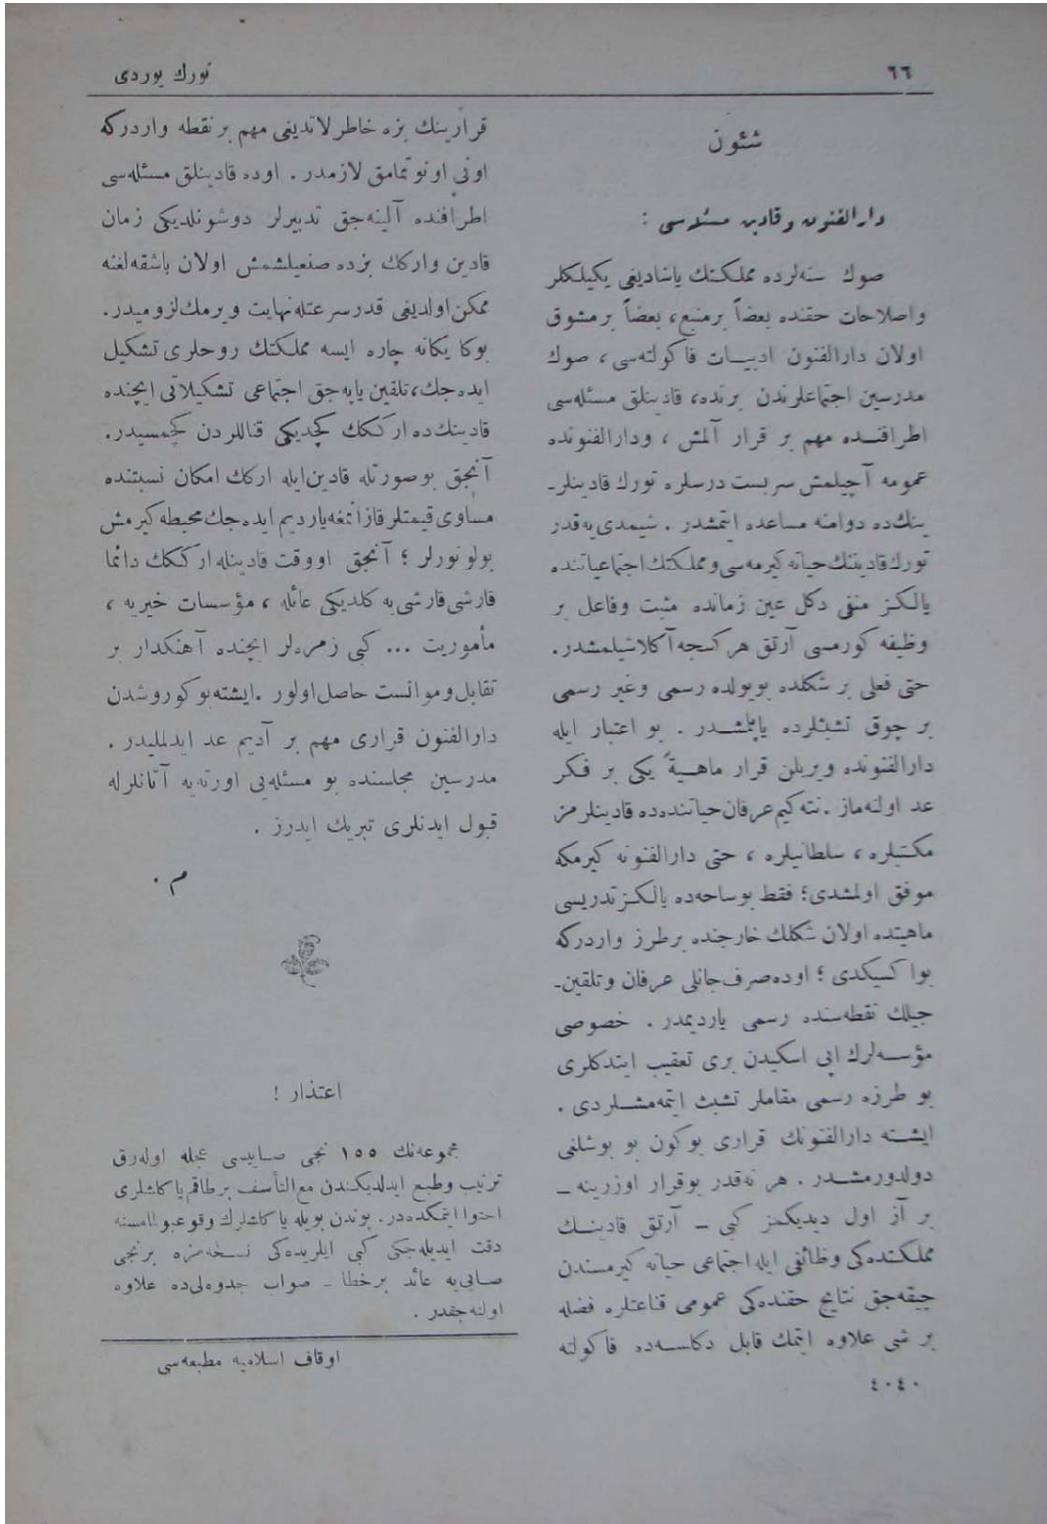 ٦٦
تورك يوردى
شئون
دار الفنون و قادين مسئله سى :
صوك سنه‌لرده مملكتك ياشاديغى يكيلكلر
و اصلاحات حقنده بعضاً بر منبع، بعضاً بر مشوق
اولان دار الفنون ادبيات فاكولته‌سى ، صوك
مدرسين اجتماعلرندن برنده، قادينلق مسئله‌سى
اطرافنده مهم بر قرار آلمش ، ودارالفنونده
عمومه آچيلمش سربست درسلره تورك قادينلر-
ينك‌ده دوامنه مساعده ايتمشدر . شيمدى‌يه قدر
تورك قادينك حياته كيرمه‌سى و مملكتك اجتماعياتنده
يالكز منفى دكل عين زمانده مثبت وفاعل بر
وظيفه كورمسى آرتق هركسجه آكلاشيلمشدر.
حتى فعلى بر شكلده بويولده رسمى وغير رسمى
بر چوق تشبثلرده ياپلمشدر . بو اعتبار ايله
دارالفنونده ويريلن قرار ماهيةً يكى بر فكر
عد اولنه‌ماز . نته كيم عرفان حياتنده‌ده قادينلرمز
مكتبلره ، سلطانيلره ، حتى دارالفنونه كيرمكه
موفق اولمشدى؛ فقط بوساحه‌ده يالكز تدريسى
ماهيتده اولان شكلك خارجنده برطرز واردركه
بوا كسيكدى ؛ اوده صرف جانلى عرفان وتلقين-
جيلك نقطه‌سنده رسمى يارديمدر . خصوصى
مؤسسه‌لرك اپى اسكيدن برى تعقيب ايتدكلرى
بو طرزه رسمى مقاملر تشبث ايتمه‌مشلردى .
ايشته دارالفنونك قرارى بوكون بو بوشلغى
دولدورمشدر . هر نه‌قدر بوقرار اوزرينه -
بر آز اول ديديكمز كبى - آرتق قادينك
مملكتده‌كى وظائفى ايله اجتماعى حياته كيرمسندن
چيقه‌جق نتايج حقنده‌كى عمومى قناعتلره فضله
بر شى علاوه ايتمك قابل دكلسه‌ده فاكولته
٤٠٤٠
قرارينك بزه خاطرلاتديغى مهم بر نقطه واردركه
اونى اونوتمامق لازمدر . اوده قادينلق مسئله‌سى
اطرافنده آلينه‌جق تدبيرلر دوشونلديكى زمان
قادين واركك بزده صنعيلشمش اولان باشقه‌لغنه
ممكن اولديغى قدر سرعتله نهايت ويرمك لزوميدر.
بوكا يكانه چاره ايسه مملكتك روحلرى تشكيل
ايده‌جك، تلقين ياپه‌جق اجتماعى تشكيلاتى ايچنده
قادينك‌ده ارككك كچديكى قناللردن كچمسيدر.
آنجق بوصورتله قادين ايله اركك امكان نسبتنده
مساوى قيمتلر قازانمغه يارديم ايده‌جك محيطه كيرمش
بولونورلر ؛ آنجق اووقت قادينله ارككك دائما
قارشى قارشى‌يه كلديكى عائله ، مؤسسات خيريه ،
مأموريت ... كبى زمره‌لر ايچنده آهنكدار بر
تقابل وموانست حاصل اولور . ايشته بو كوروشدن
دارالفنون قرارى مهم بر آديم عد ايدلمليدر .
مدرسين مجلسنده بو مسئله‌يى اورته‌يه آتانلرله
قبول ايدنلرى تبريك ايدرز .
م .
اعتذار !
مجموعه‌نك ١٥٥ نجى صاييسى عجله اوله‌رق
ترتيب وطبع ايدلديكندن مع التأسف برطاقم ياكلشلرى
احتوا ايتمكده‌در. بوندن بويله ياكلشلرك وقوعبولمامسنه
دقت ايديله‌جكى كبى ايلريده‌كى نسخه‌مزه برنجى
صايى‌يه عائد برخطا - صواب جدولى‌ده علاوه
اولنه‌جقدر .
اوقاف اسلاميه مطبعه‌سى